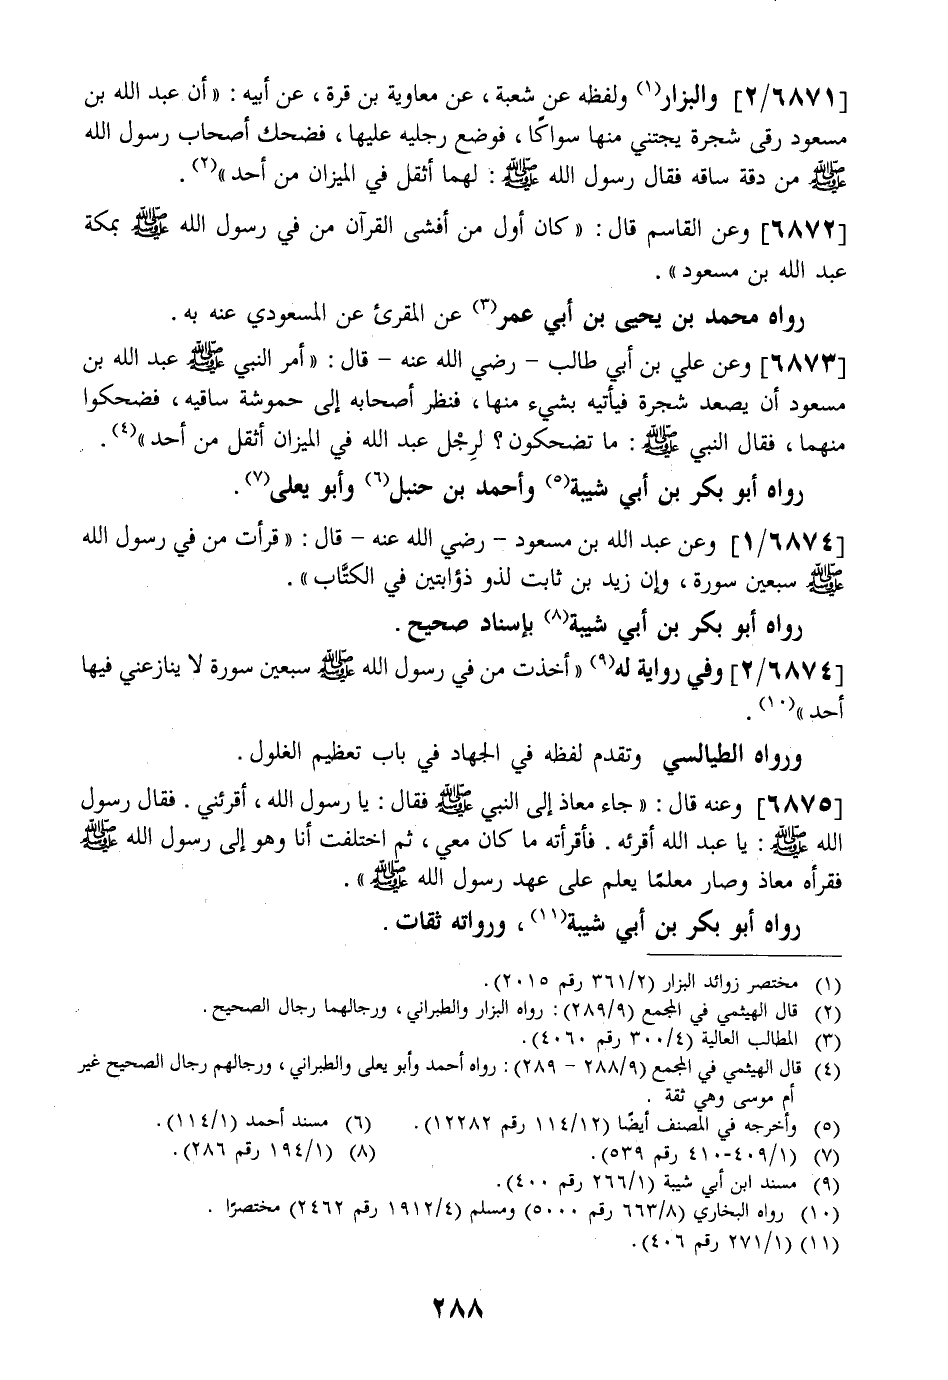 [٢/٦٨٧١] والبزار(١) ولفظه عن شعبة ، عن معاوية بن قرة ، عن أبيه : « أن عبد الله بن
مسعود رقى شجرة يجتني منها سواكًا ، فوضع رجليه عليها ، فضحك أصحاب رسول الله
ﷺ من دقة ساقه فقال رسول الله ﷺ : لهما أثقل في الميزان من أحد »(٢) .
[٦٨٧٢] وعن القاسم قال : « كان أول من أفشى القرآن من في رسول الله ﷺ بمكة
عبد الله بن مسعود » .
رواه محمد بن يحيى بن أبي عمر(٣) عن المقرئ عن المسعودي عنه به .
[٦٨٧٣] وعن علي بن أبي طالب – رضي الله عنه – قال : « أمر النبي ﷺ عبد الله بن
مسعود أن يصعد شجرة فيأتيه بشيء منها ، فنظر أصحابه إلى حموشة ساقيه ، فضحكوا
منهما ، فقال النبي ﷺ : ما تضحكون ؟ لرِجْل عبد الله في الميزان أثقل من أحد »(٤) .
رواه أبو بكر بن أبي شيبة(٥) وأحمد بن حنبل(٦) وأبو يعلى(٧) .
[١/٦٨٧٤] وعن عبد الله بن مسعود – رضي الله عنه – قال : « قرأت من في رسول الله
ﷺ سبعين سورة ، وإن زيد بن ثابت لذو ذؤابتين في الكتَّاب » .
رواه أبو بكر بن أبي شيبة(٨) بإسناد صحيح .
[٢/٦٨٧٤] وفي رواية له(٩) « أخذت من في رسول الله ﷺ سبعين سورة لا ينازعني فيها
أحد »(١٠) .
ورواه الطيالسي وتقدم لفظه في الجهاد في باب تعظيم الغلول .
[٦٨٧٥] وعنه قال : « جاء معاذ إلى النبي ﷺ فقال : يا رسول الله ، أقرئني . فقال رسول
الله ﷺ : يا عبد الله أقرئه . فأقرأته ما كان معي ، ثم اختلفت أنا وهو إلى رسول الله ﷺ
فقرأه معاذ وصار معلمًا يعلم على عهد رسول الله ﷺ » .
رواه أبو بكر بن أبي شيبة(١١) ، ورواته ثقات .
(١) مختصر زوائد البزار (٣٦١/٢ رقم ٢٠١٥) .
(٢) قال الهيثمي في المجمع (٢٨٩/٩) : رواه البزار والطبراني ، ورجالهما رجال الصحيح .
(٣) المطالب العالية (٣٠٠/٤ رقم ٤٠٦٠) .
(٤) قال الهيثمي في المجمع (٢٨٨/٩ – ٢٨٩) : رواه أحمد وأبو يعلى والطبراني ، ورجالهم رجال الصحيح غير
أم موسى وهي ثقة .
(٥) وأخرجه في المصنف أيضًا (١١٤/١٢ رقم ١٢٢٨٢) . (٦) مسند أحمد (١١٤/١) .
(٧) (٤٠٩/١-٤١٠ رقم ٥٣٩) . (٨) (١٩٤/١ رقم ٢٨٦) .
(٩) مسند ابن أبي شيبة (٢٦٦/١ رقم ٤٠٠) .
(١٠) رواه البخاري (٦٦٣/٨ رقم ٥٠٠٠) ومسلم (١٩١٢/٤ رقم ٢٤٦٢) مختصرًا .
(١١) (٢٧١/١ رقم ٤٠٦) .
٢٨٨